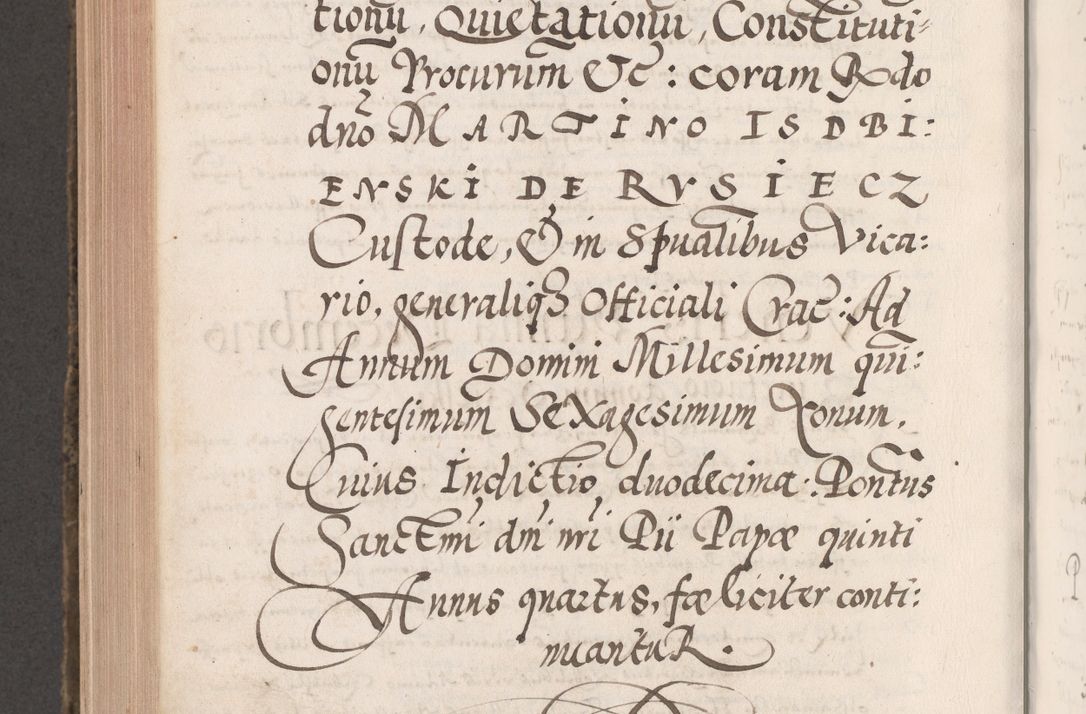 tionū, Quietationū, Constituti-
onū Procurum̄ Etc̄: coram R̄do
dnō MARTINO ISDBI:
ENSKI DE RVSIECZ
Custode, Et in Sp̄ualibus Vica:
rio, generaliq3 Officiali Crac̄: Ad
Annum Domini Millesimum qui:
gentesimum SeXagesimum Nonum.
Cuius Indictio duodecima. Pontus
Sanctmi dni nri Pii Papæ quinti
Annus quartus, fœliciter conti:
nuantuR.